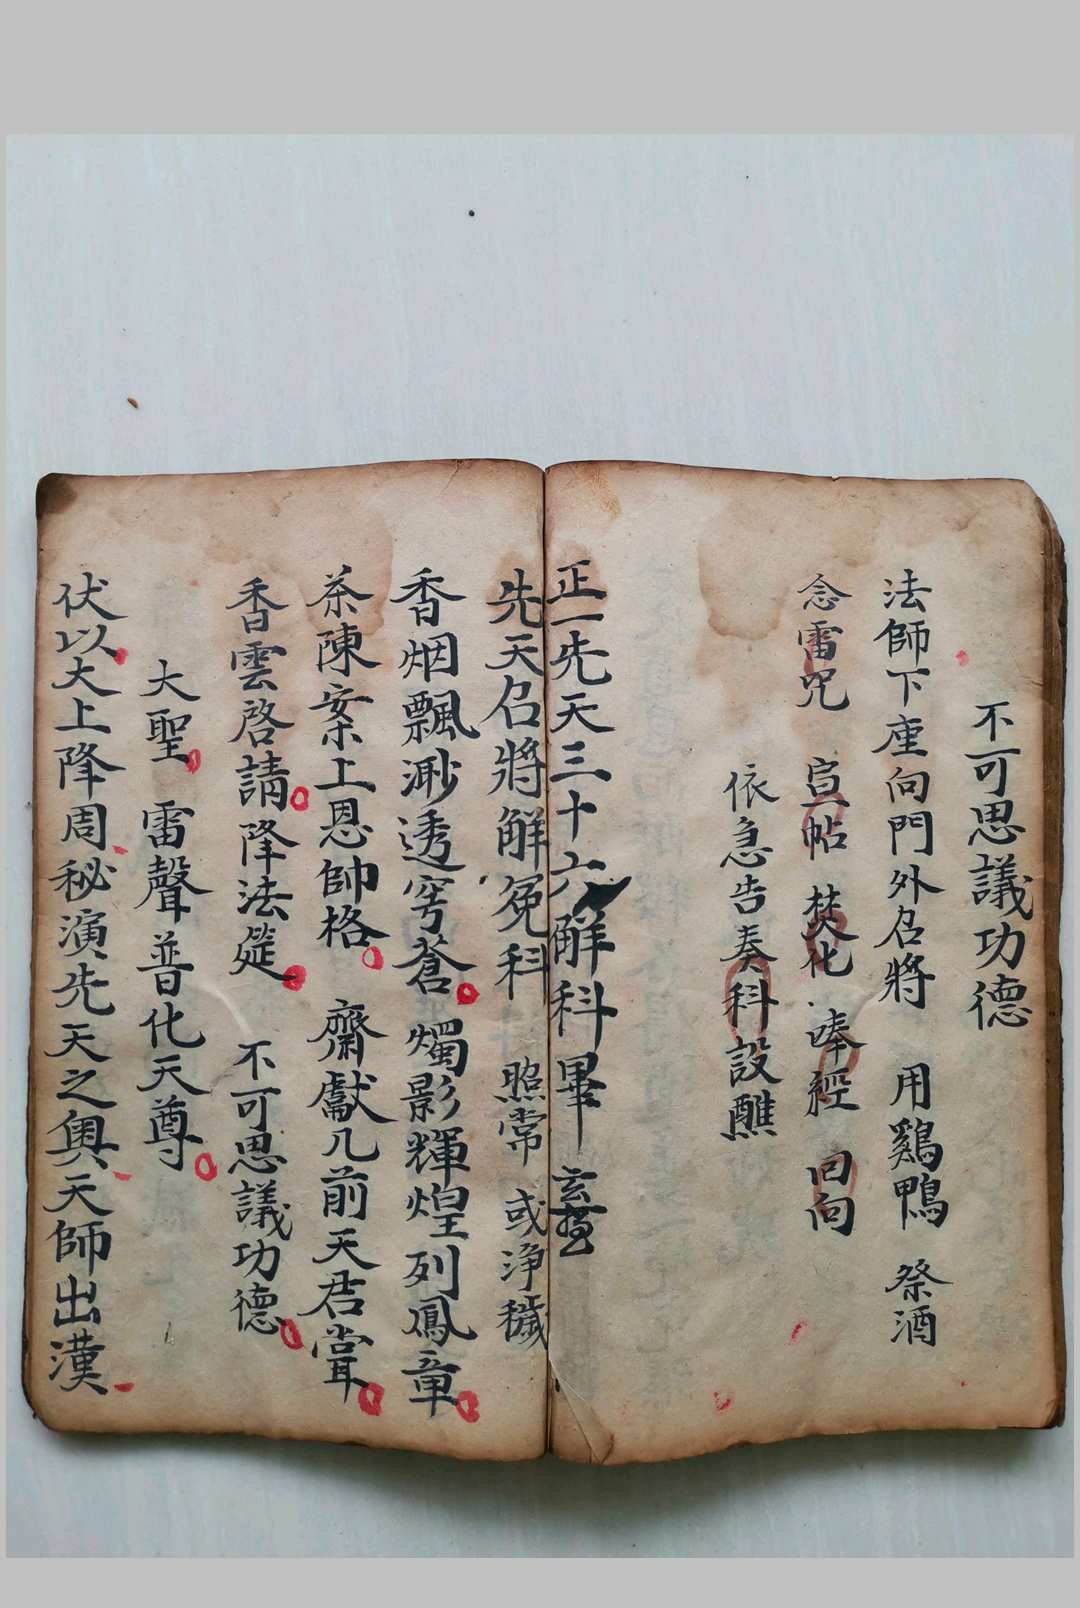 不可思議功德
法師下座向門外召將 用鷄鴨 祭酒
念雷咒 宣帖 焚化 奉經 回向
依急告奏科設醮
正一先天三十六解科畢
先天召將解冤科 照常 或淨穢
香烟飄渺透穹蒼 燭影輝煌列鳳章
茶陳案上恩師格 齋獻几前天君嘗
香雲啓請降法筵 不可思議功德
大聖 雷聲普化天尊
伏以大上降周秘演先天之奧天師出漢